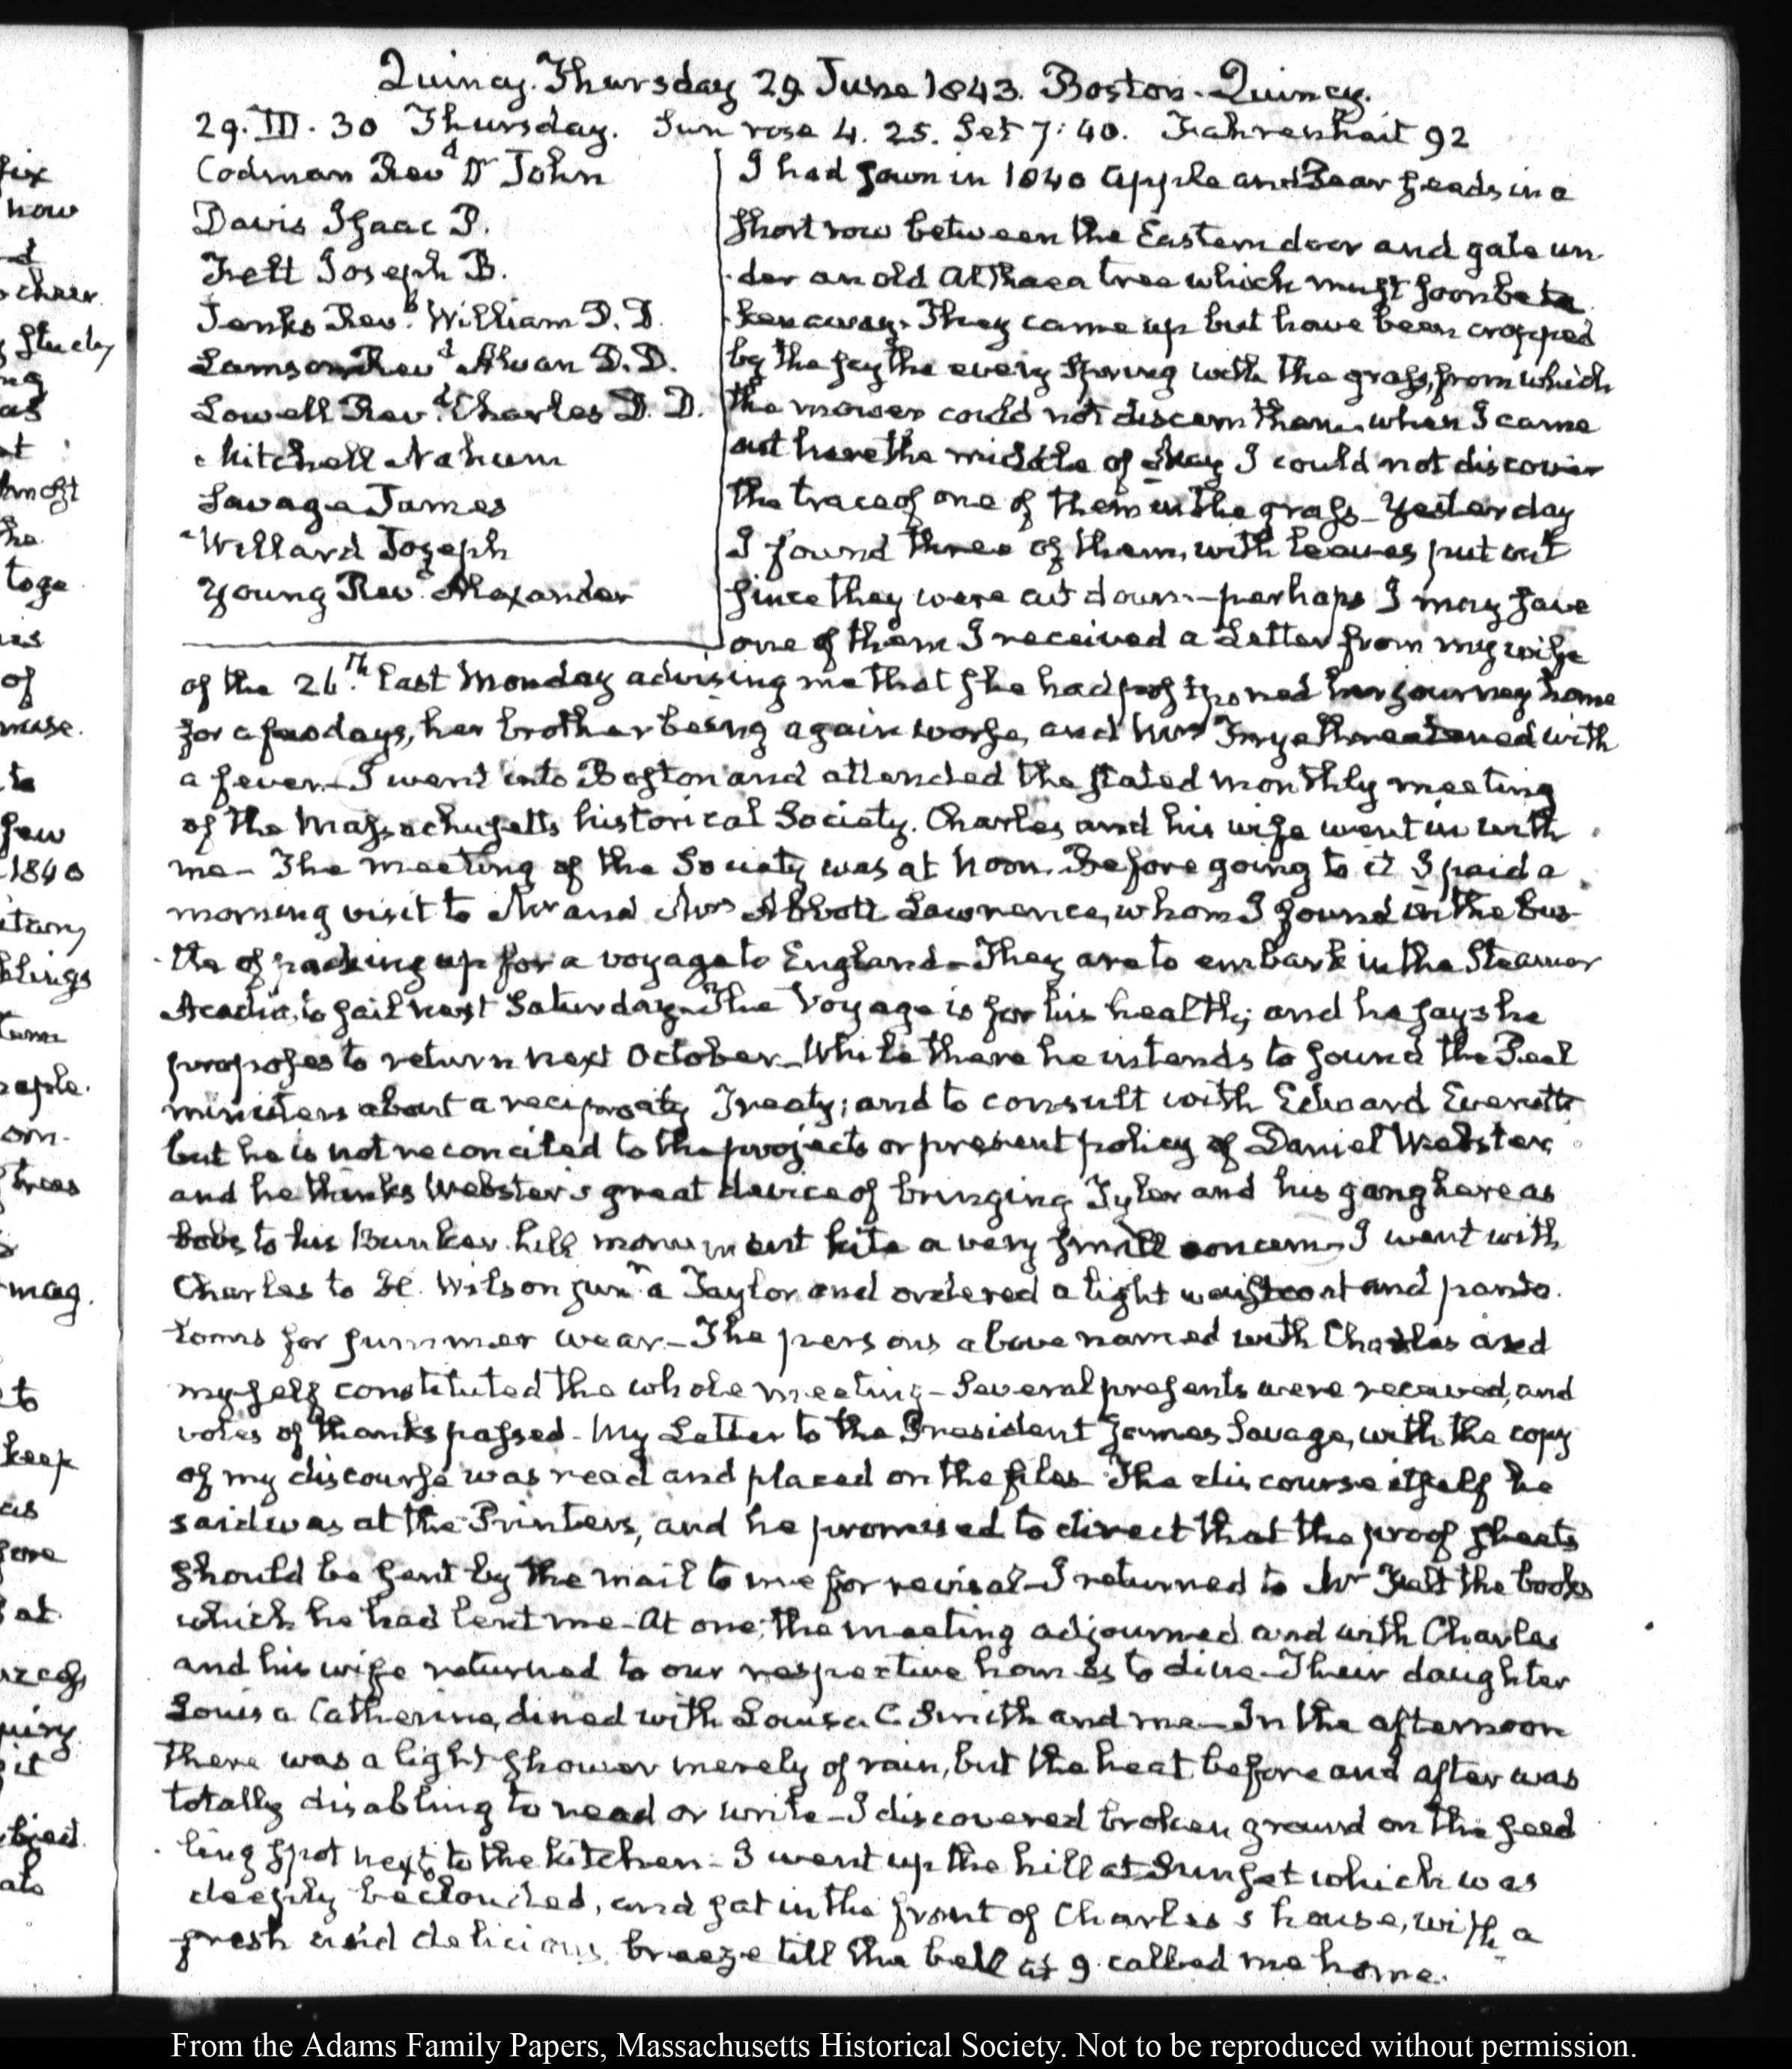 Quincy. Thursday 29 June 1843. Boston. Quincy.
29. III. 30 Thursday. Sun rose 4. 25. Set 7: 40. Fahrenheit 92
Codman Revd Dr John
Davis Isaac P.
Felt Joseph B.
Jenks Revd. William D. D.
Lamson Revd Alvan D. D.
Lowell Revd. Charles D. D.
Mitchell Nahum
Savage James
Willard Joseph
Young Revd. Alexander
I had sown in 1840 Apple and Pear seeds in a
short row between the Eastern door and gate un-
der an old Althaea tree which must soon be ta
ken away. They came up but have been cropped
by the scythe every Spring with the grass, from which
the mower could not discern them. when I came
out here the middle of May I could not discover
the trace of one of them in the grass - Yesterday
I found three of them, with leaves put out
since they were cut down - perhaps I may save
one of them I received a Letter from my wife
of the 26.th last Monday advising me that she had postponed her journey home
for a few days, her brother being again worse, and Mrs Frye threatened with
a fever - I went into Boston and attended the stated monthly meeting
of the Massachusetts historical Society. Charles and his wife went in with
me - The meeting of the Society was at Noon. Before going to it I paid a
morning visit to Mr and Mrs Abbott Lawrence, whom I found in the bus-
tle of packing up for a voyage to England - They are to embark in the Steamer
Acadia, to sail next Saturday - The Voyage is for his health; and he says he
proposes to return next October - While there he intends to sound the Peel
ministers about a reciprocity Treaty; and to consult with Edward Everett
but he is not reconciled to the projects or present policy of Daniel Webster,
and he thinks Webster's great device of bringing Tyler and his gang here as
bobs to his Bunker hill monument kite a very small concern - I went with
Charles to H. Wilson junr a Taylor and ordered a light waistcoat and panta-
loons for summer wear - The persons above named with Charles and
myself constituted the whole meeting - Several presents were received, and
votes of thanks passed - My Letter to the President James Savage, with the copy
of my discourse was read and placed on the files - The discourse itself he
said was at the Printers, and he promised to direct that the proof sheets
should be sent by the mail to me for revisal - I returned to Mr Felt the books
which he had lent me - At one, the meeting adjourned and with Charles
and his wife returned to our respective homes to dine - Their daughter
Louisa Catherine, dined with Louisa C. Smith and me - In the afternoon
there was a light shower merely of rain, but the heat before and after was
totally disabling to read or write - I discovered broken ground on the seed
ling spot next to the kitchen - I went up the hill at Sunset which was
deeply beclouded, and sat in the front of Charles's house, with a
fresh and delicious breeze till the bell at 9 called me home.
From the Adams Family Papers, Massachusetts Historical Society. Not to be reproduced without permission.